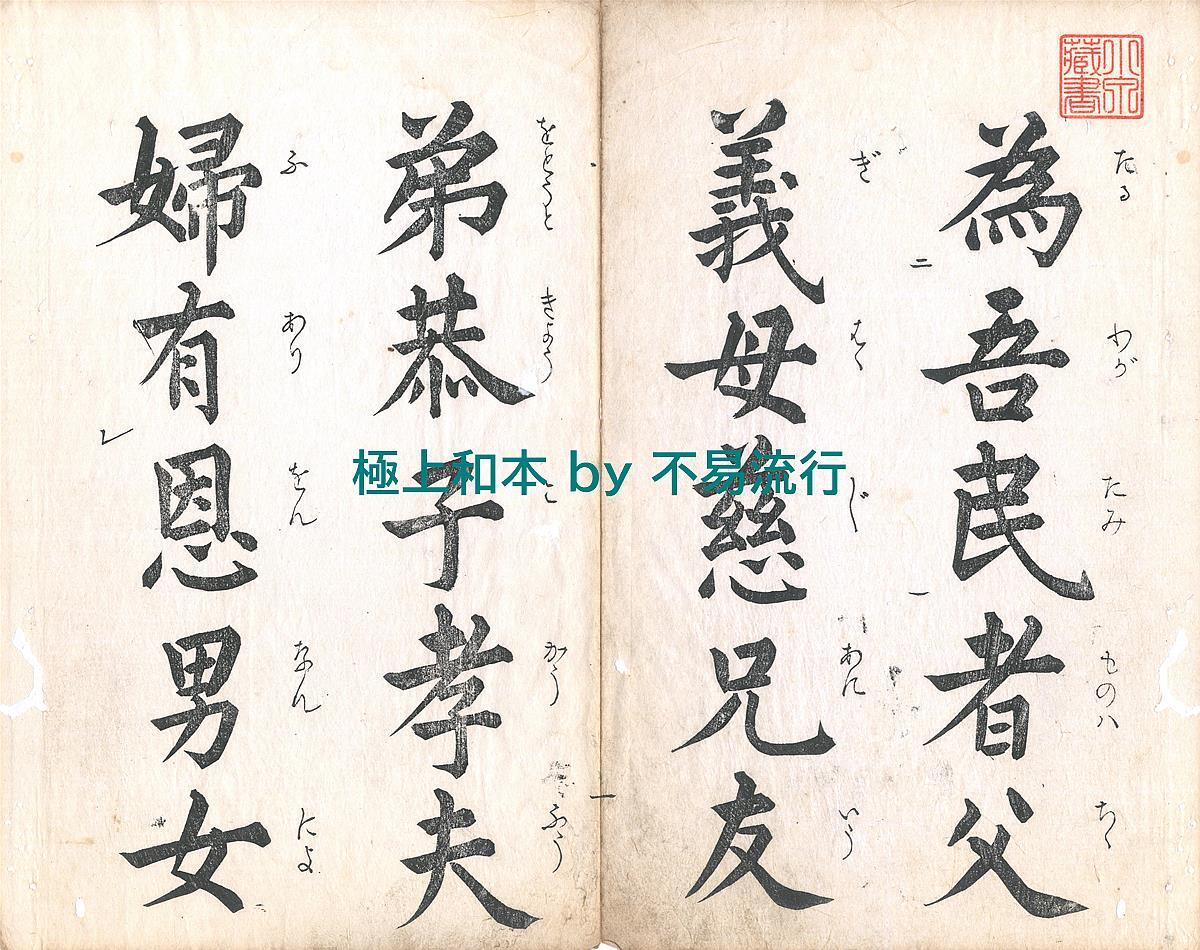 為吾民者父
たる わが たみ ものハ ちゝ
二 一
義母慈兄友
ぎ はゝ じ あに いう
弟恭子孝夫
をとうと きよう こ かう ふう
一
婦有恩男女
ふ あり をん なん によ
レ
極上和本 by 不易流行
藏書